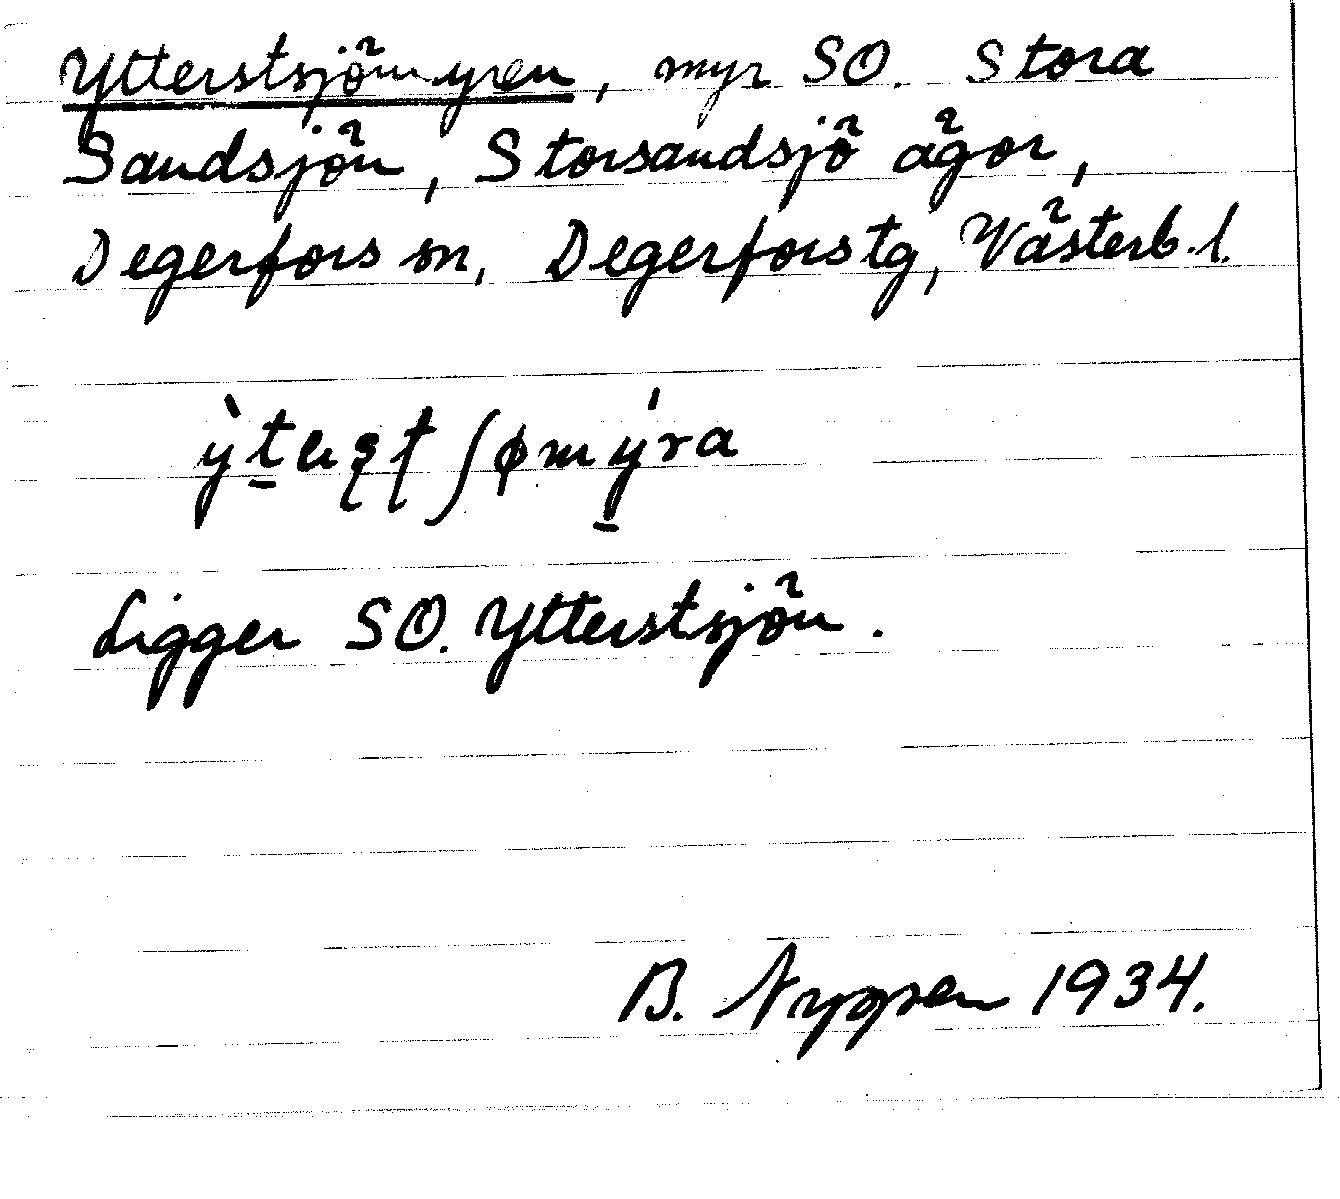 Ytterstsjömyren, myr SO. Stora
Sandsjön, Storsandsjö ägor,
Degerfors sn, Degerfors tg, Västerb. l.
Ligger SO. Ytterstsjön.
B. Nygren 1934.